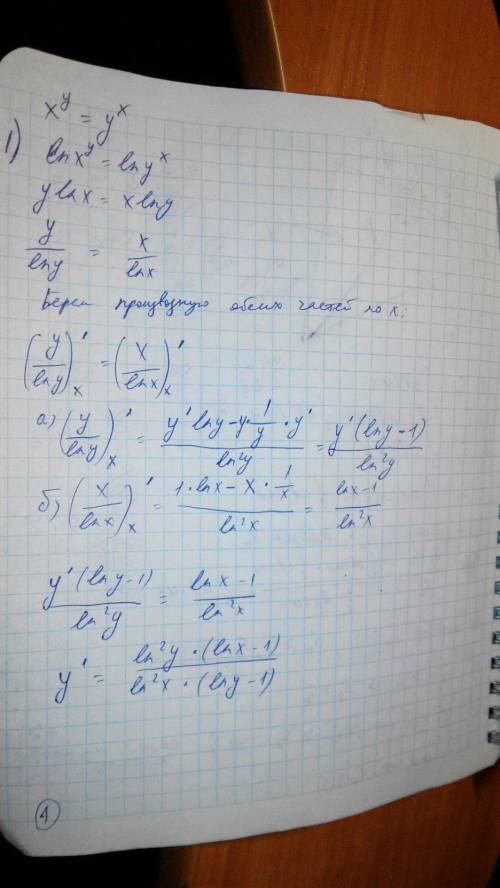 1) x^y = y^x
ln x^y = ln y^x
y ln x = x ln y
y/ln y = x/ln x
Берем производную обеих частей по x:
(y/ln y)'_x = (x/ln x)'_x
а) (y/ln y)'_x = (y' ln y - y · 1/y · y')/ln²y = y'(ln y - 1)/ln²y
б) (x/ln x)'_x = (1 · ln x - x · 1/x)/ln²x = (ln x - 1)/ln²x
y'(ln y - 1)/ln²y = (ln x - 1)/ln²x
y' = ln²y · (ln x - 1)/ln²x · (ln y - 1)
1